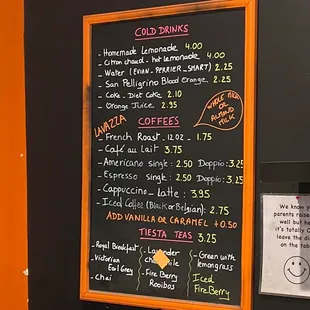 COLD DRINKS
- Homemade Lemonade 4.00
- Citron chaud - hot lemonade 4.00
- Water (EVIAN - PERRIER - SMART) 2.25
- San Pellegrino Blood Orange 2.25
- Coke - Diet Coke 2.10
- Orange Juice 2.95
COFFEES
WHOLE MILK OR ALMOND MILK
LAVAZZA
- French Roast - 12oz - 1.75
- Café au Lait 3.75
- Americano single: 2.50 Doppio: 3.25
- Espresso single: 2.50 Doppio: 3.25
- Cappuccino - Latte: 3.95
- Iced Coffee (Black or Belgian): 2.75
ADD VANILLA OR CARAMEL +0.50
TIESTA TEAS 3.25
- Royal Breakfast
- Victorian Earl Grey
- Chai
- Lavender
- Fire Berry Rooibos
- Green with lemongrass
Iced Fire Berry
We know y
parents raise
well but he
it's totally O
leave the di
on the tab